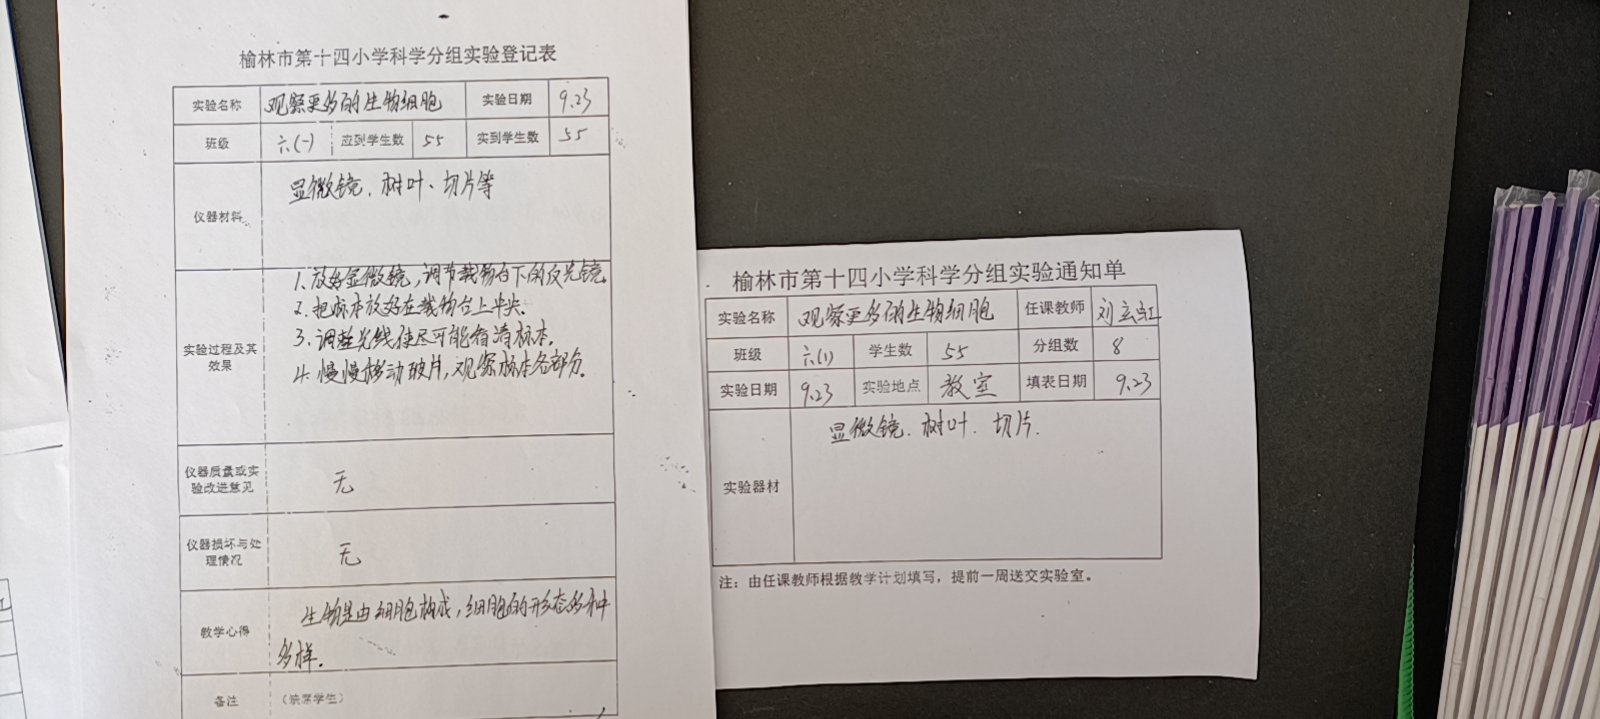 榆林市第十四小学科学分组实验登记表
实验名称 观察更多的生物细胞 实验日期 9.23
班级 六(一) 应到学生数 55 实到学生数 55
仪器材料 显微镜、树叶、切片等
实验过程及其效果
1.放好显微镜,调节载物台下的反光镜
2.把标本放好在载物台上中央.
3.调整光线使尽可能看清标本.
4.慢慢移动玻片,观察标本各部分.
仪器质量或实验改进意见 无
仪器损坏与处理情况 无
教学心得 生物是由细胞构成,细胞的形态多种
多样.
备注 (缺席学生)
榆林市第十四小学科学分组实验通知单
实验名称 观察更多的生物细胞 任课教师 刘
班级 六(1) 学生数 55 分组数 8
实验日期 9.23 实验地点 教室 填表日期 9.23
实验器材 显微镜、树叶、切片.
注:由任课教师根据教学计划填写,提前一周送交实验室。